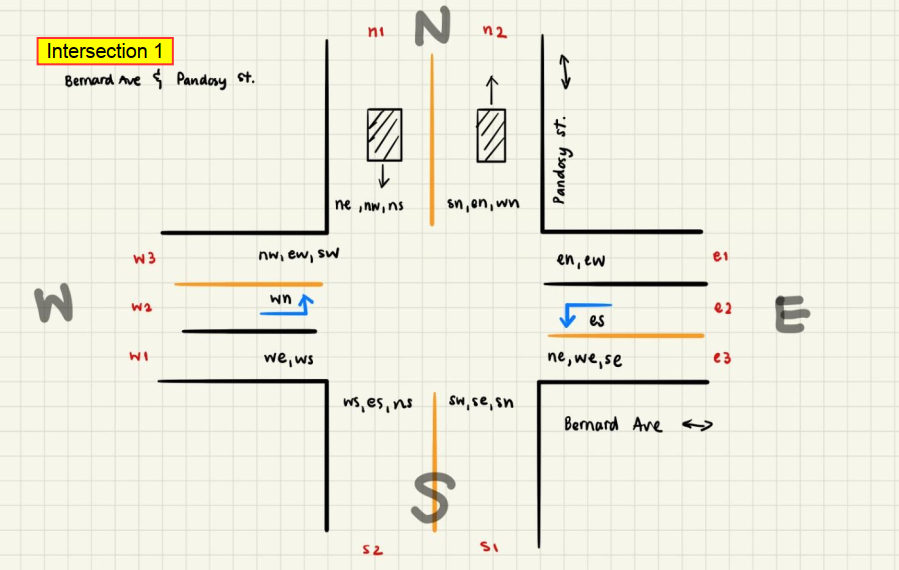 n1 N n2
Intersection 1
Bernard Ave & Pandosy St.
Pandosy St.
ne, nw, ns
sn, en, wn
w3
nw, ew, sw
en, ew
e1
W
w2
wn
es
e2
E
w1
we, ws
ne, we, se
e3
ws, es, ns
sw, se, sn
Bernard Ave
S
s2
s1